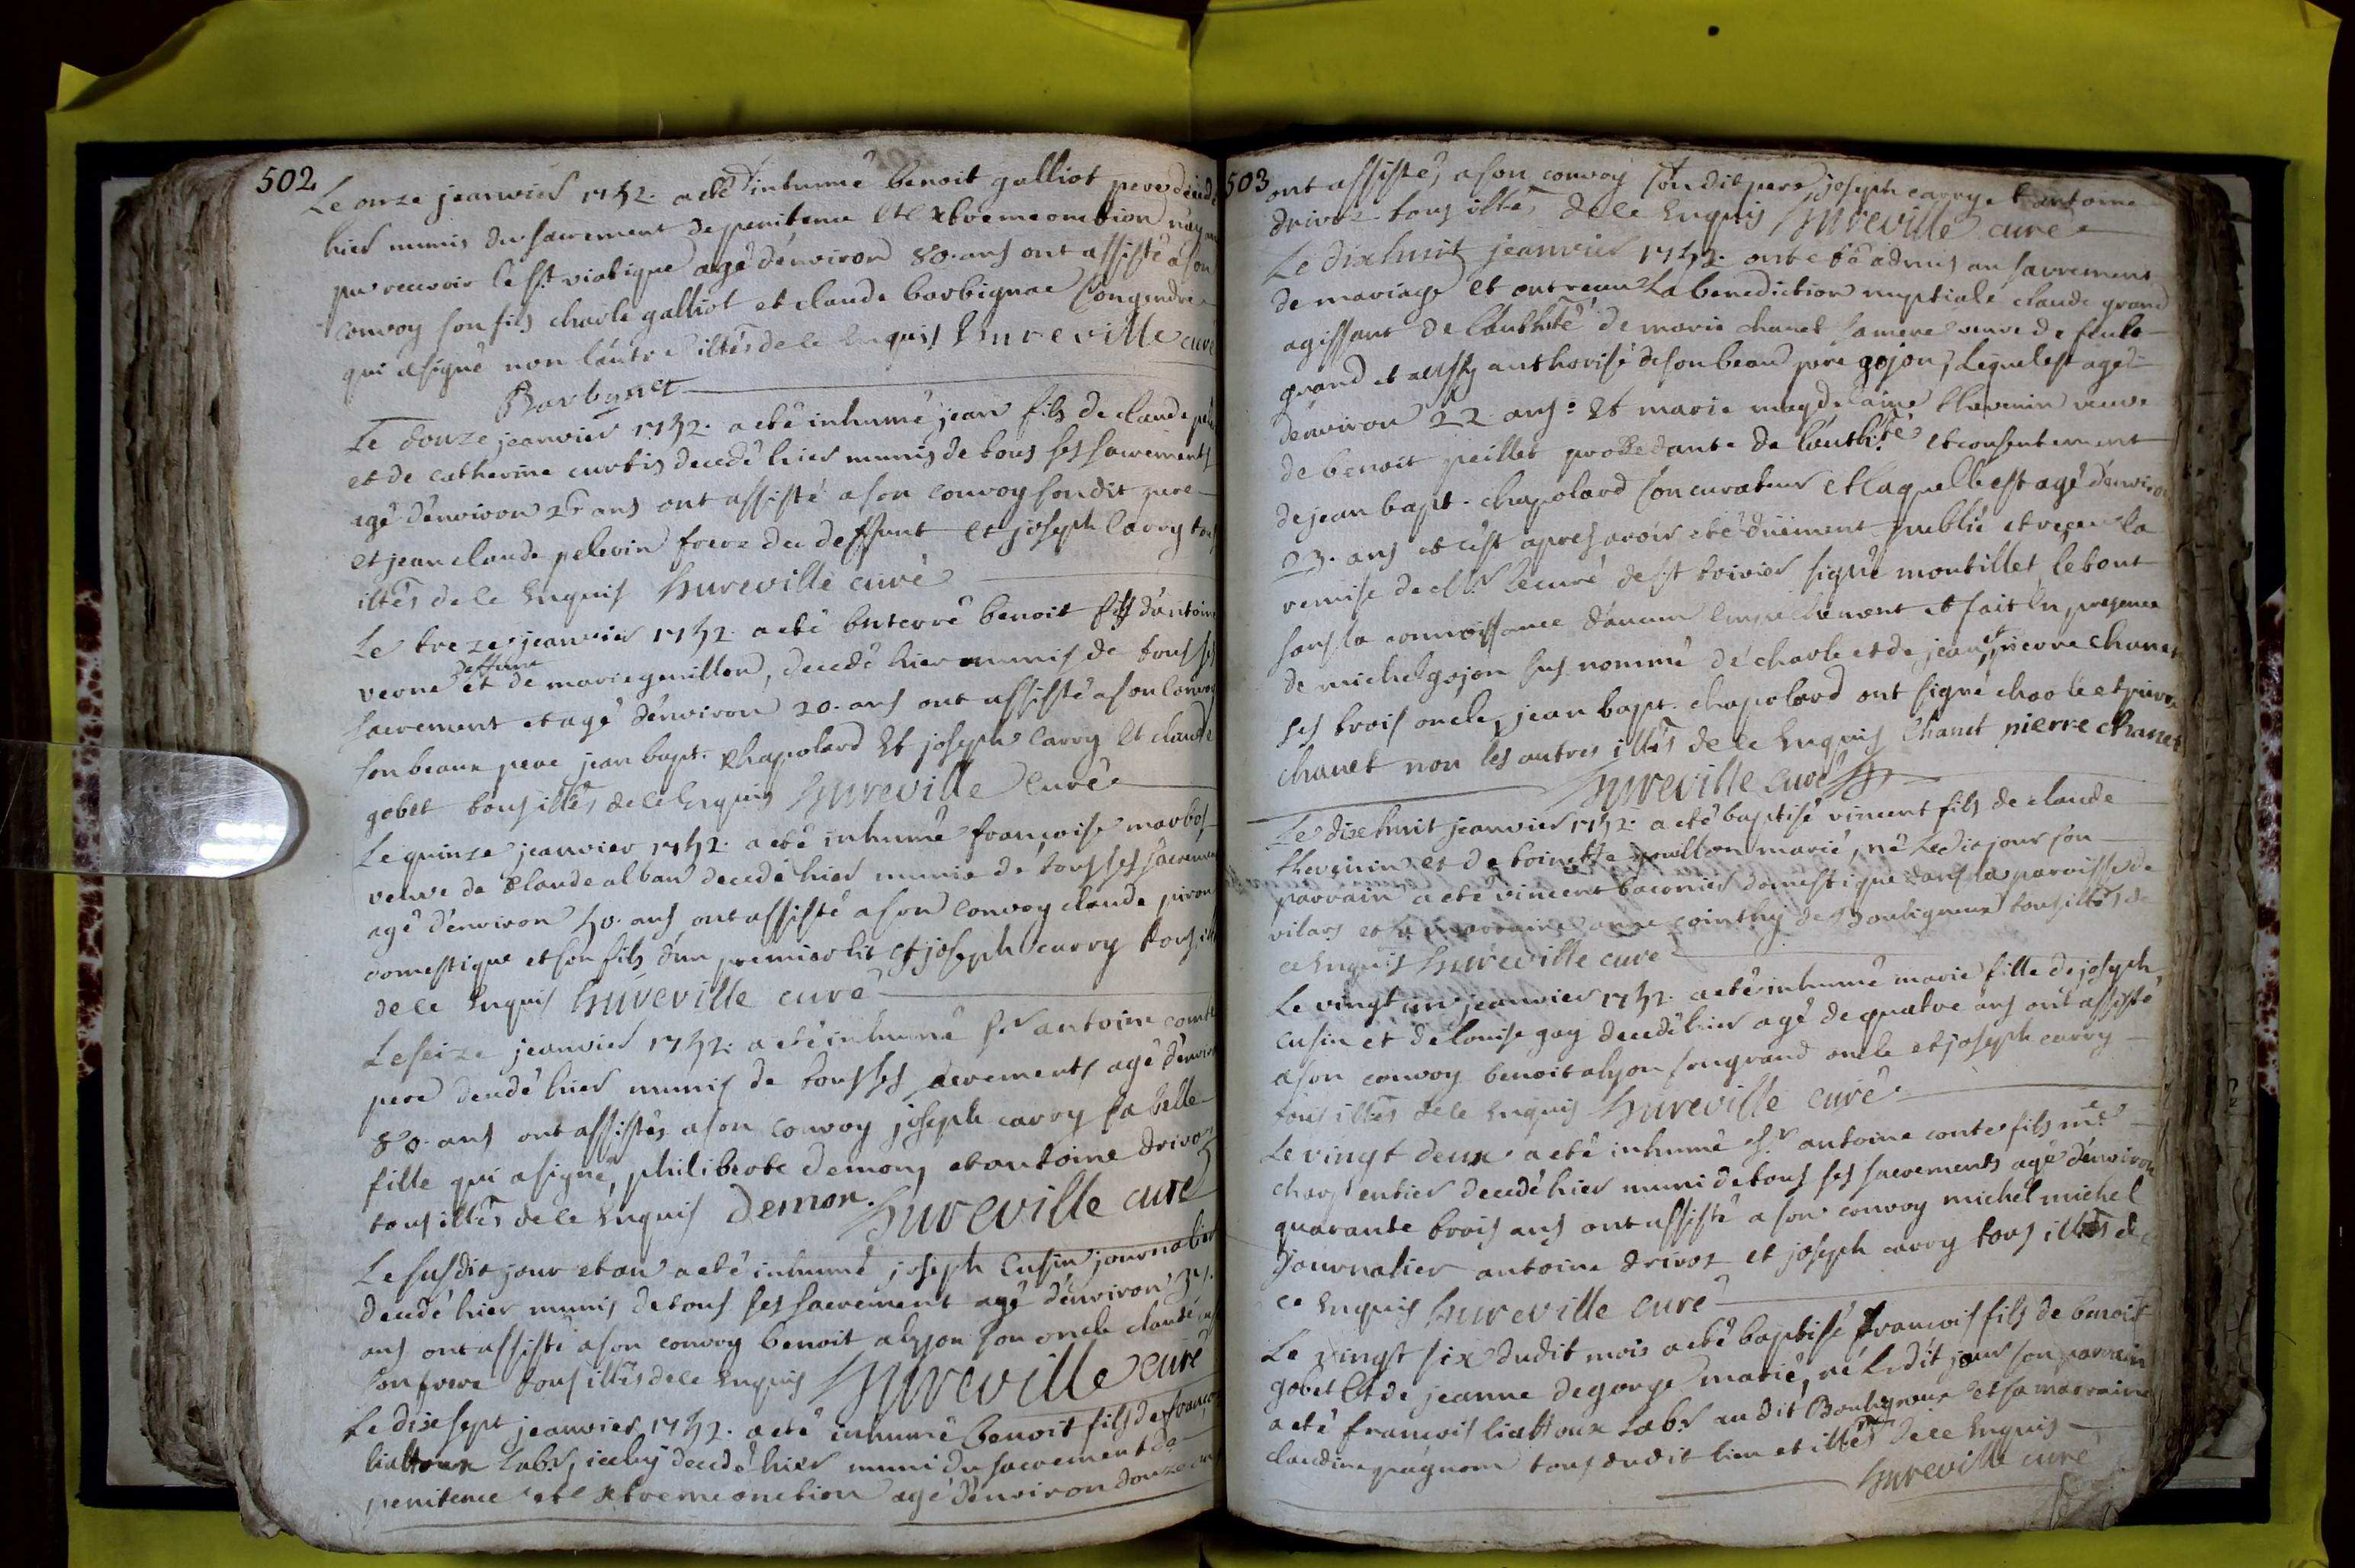 502
Le onze jeanvier 1752. a etè inhumé benoit galliot pere décedé
hier munis du sacrement de penitence et extreme onction n'ayant
pu recevoir le st. viatique agé d'environ 80. ans ont assisté a son
convoy son fils charle galliot et claude barbignae son gendre
qui a signé non l'autre illes de ce enquis hureville curé
Barbynet
Le douze jeanvier 1752. a eté inhumé jean fils de claude
et de catherine curtis decedé hier munis de tous ses sacrements
agé d'environ ans ont assisté a son convoy son dit pere
et jean claude pelevin frere du deffunt et joseph carry tous
illes de ce enquis hureville curé
Le treze jeanvier 1752. a eté enterré benoit fils d'antoine
verne et de deffune marie gnillon, decedé hier munis de tous ses
sacrement et agé d'environ 20. ans ont assisté a son convoy
son beaux pere jean bapt. chapolard et joseph carry et claude
gobet tous illes de ce enquis hureville curé
Le quinze jeanvier 1752. a eté inhumé françoise marbos
veuve de claude alban decedé hier munie de tous ses sacrement
agé d'environ 50. ans, ont assisté a son convoy claude piron
domestique et son fils d'un premier lit et joseph carry tous ill
de ce enquis hureville curé
Le seize jeanvier 1752. a eté inhumé sr antoine comte
pere decedé hier munis de tous ses sacrements agé d'environ
80. ans ont assistés a son convoy joseph carry sa belle
fille qui a signé, philiberte demon, et antoine drivoz
tous illes de ce enquis Demon. hureville curé
Le susdit jour et an a eté inhumé joseph cusin journalier
decedé hier munis de tous ses sacrement agé d'environ
ans ont assisté a son convoy benoit alyon son oncle claude
son frere tous illes de ce enquis hureville curé
Le dixsept jeanvier 1752. a eté inhumé benoit fils de françois
liattoux labr, iceluy decedé hier muni du sacrement de
penitence et extreme onction agé d'environ douze ans
503
ont assistés a son convoy son dit pere joseph carry et antoine
drivoz tous illes de ce enquis hureville curé
Le dixhuit jeanvier 1752. ont eté admis au sacrement
de mariage et ont recu la benediction nuptiale claude grand
agissant de l'authté de marie chanet sa mere veuve de feu
grand et aussy authorisé de son beau pere gojon, lequel est agé
d'environ 22. ans: et marie magdelaine thevenin veuve
de benoit peillet procedante de l'authté et consentement
de jean bapt. chapolard son curateur et laquelle est agé d'environ
23. ans et c'est apres avoir eté duement publié et reçu la
remise de Mr le curé de st trivier signé montillet le tout
sans la connoissance d'aucun empechement et fait en presence
de michel gojon sus nommé de charle et de jean et pierre chanet
ses trois oncle, jean bapt. chapolard ont signé charle et pierre
chanet non les autres illes de ce enquis Chanet pierre chanet
hureville curé
Le dixehuit jeanvier 1752. a eté baptisé vincent fils de claude
thevenin et de toinette guillon marié, né ledit jour son
parrain a eté vincent baconnier domestique dans la paroisse de
vilars et sa marraine anne cointhy de Bouligneux tous illes de
ce enquis hureville curé
Le vingt un jeanvier 1752. a eté inhumé marie fille de joseph
cusin et de louise gay decedé hier agé de quatre ans ont assisté
a son convoy benoit alyon son grand oncle et joseph carry
tous illes de ce enquis hureville curé
Le vingt deux a eté inhumé sr antoine conte fils me
charpentier decedé hier muni de tous ses sacrements agé d'environ
quarante trois ans ont assisté a son convoy michel michel
journalier antoine drivoz et joseph carry tous illes de
ce enquis hureville curé
Le vingt six dudit mois a eté baptisé francois fils de benoit
gobet et de jeanne degorge marié, né ledit jour son parrain
a eté francois liattoux labr audit Bouligneux et sa marraine
claudine pagnon tous dudit lieu et illes de ce enquis
hureville curé